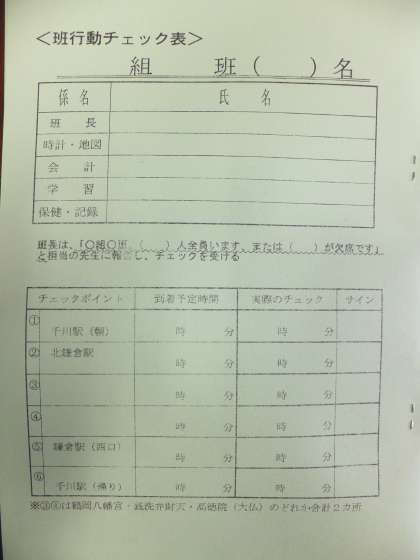 ＜班行動チェック表＞
組　　班（　　）名
係名　氏　名
班　長
時計・地図
会　計
学　習
保健・記録
班長は、「〇組〇班、（　　）人全員います。または（　　）が欠席です」
と担当の先生に報告し、チェックを受ける
チェックポイント　到着予定時間　実際のチェック　サイン
① 千川駅（朝）　時　分　時　分
② 北鎌倉駅　時　分　時　分
③　時　分　時　分
④　時　分　時　分
⑤ 鎌倉駅（西口）　時　分　時　分
⑥ 千川駅（帰り）　時　分　時　分
※③④は鶴岡八幡宮・銭洗弁財天・高徳院（大仏）のどれか合計２カ所